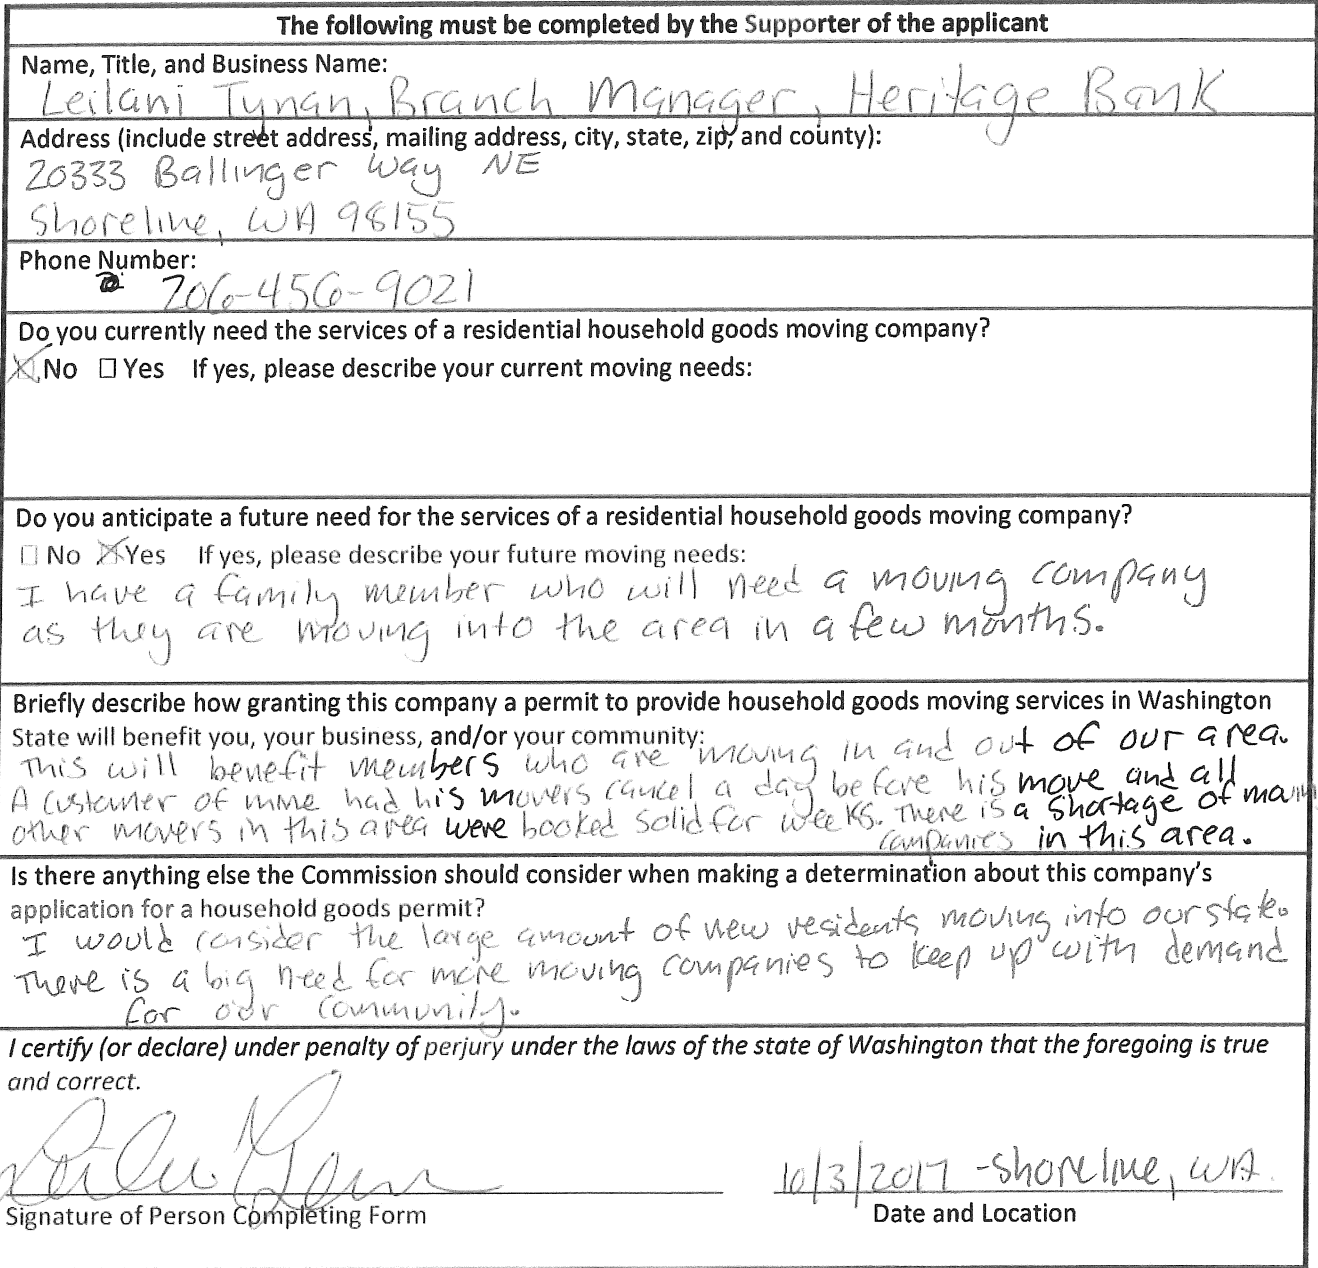 The following must be completed by the Supporter of the applicant
Name, Title, and Business Name:
Leilani Tynan, Branch Manager, Heritage Bank
Address (include street address, mailing address, city, state, zip, and county):
20333 Ballinger Way NE
Shoreline, WA 98155
Phone Number:
206-456-9021
Do you currently need the services of a residential household goods moving company?
☒ No ☐ Yes If yes, please describe your current moving needs:
Do you anticipate a future need for the services of a residential household goods moving company?
☐ No ☒ Yes If yes, please describe your future moving needs:
I have a family member who will need a moving company
as they are moving into the area in a few months.
Briefly describe how granting this company a permit to provide household goods moving services in Washington
State will benefit you, your business, and/or your community:
This will benefit members who are moving in and out of our area.
A customer of mine had his movers cancel a day before his move and all
other movers in this area were booked solid for weeks. There is a shortage of moving
companies in this area.
Is there anything else the Commission should consider when making a determination about this company's
application for a household goods permit?
I would consider the large amount of new residents moving into our state.
There is a big need for more moving companies to keep up with demand
for our community.
I certify (or declare) under penalty of perjury under the laws of the state of Washington that the foregoing is true
and correct.
10/3/2017 - Shoreline, WA.
Signature of Person Completing Form
Date and Location